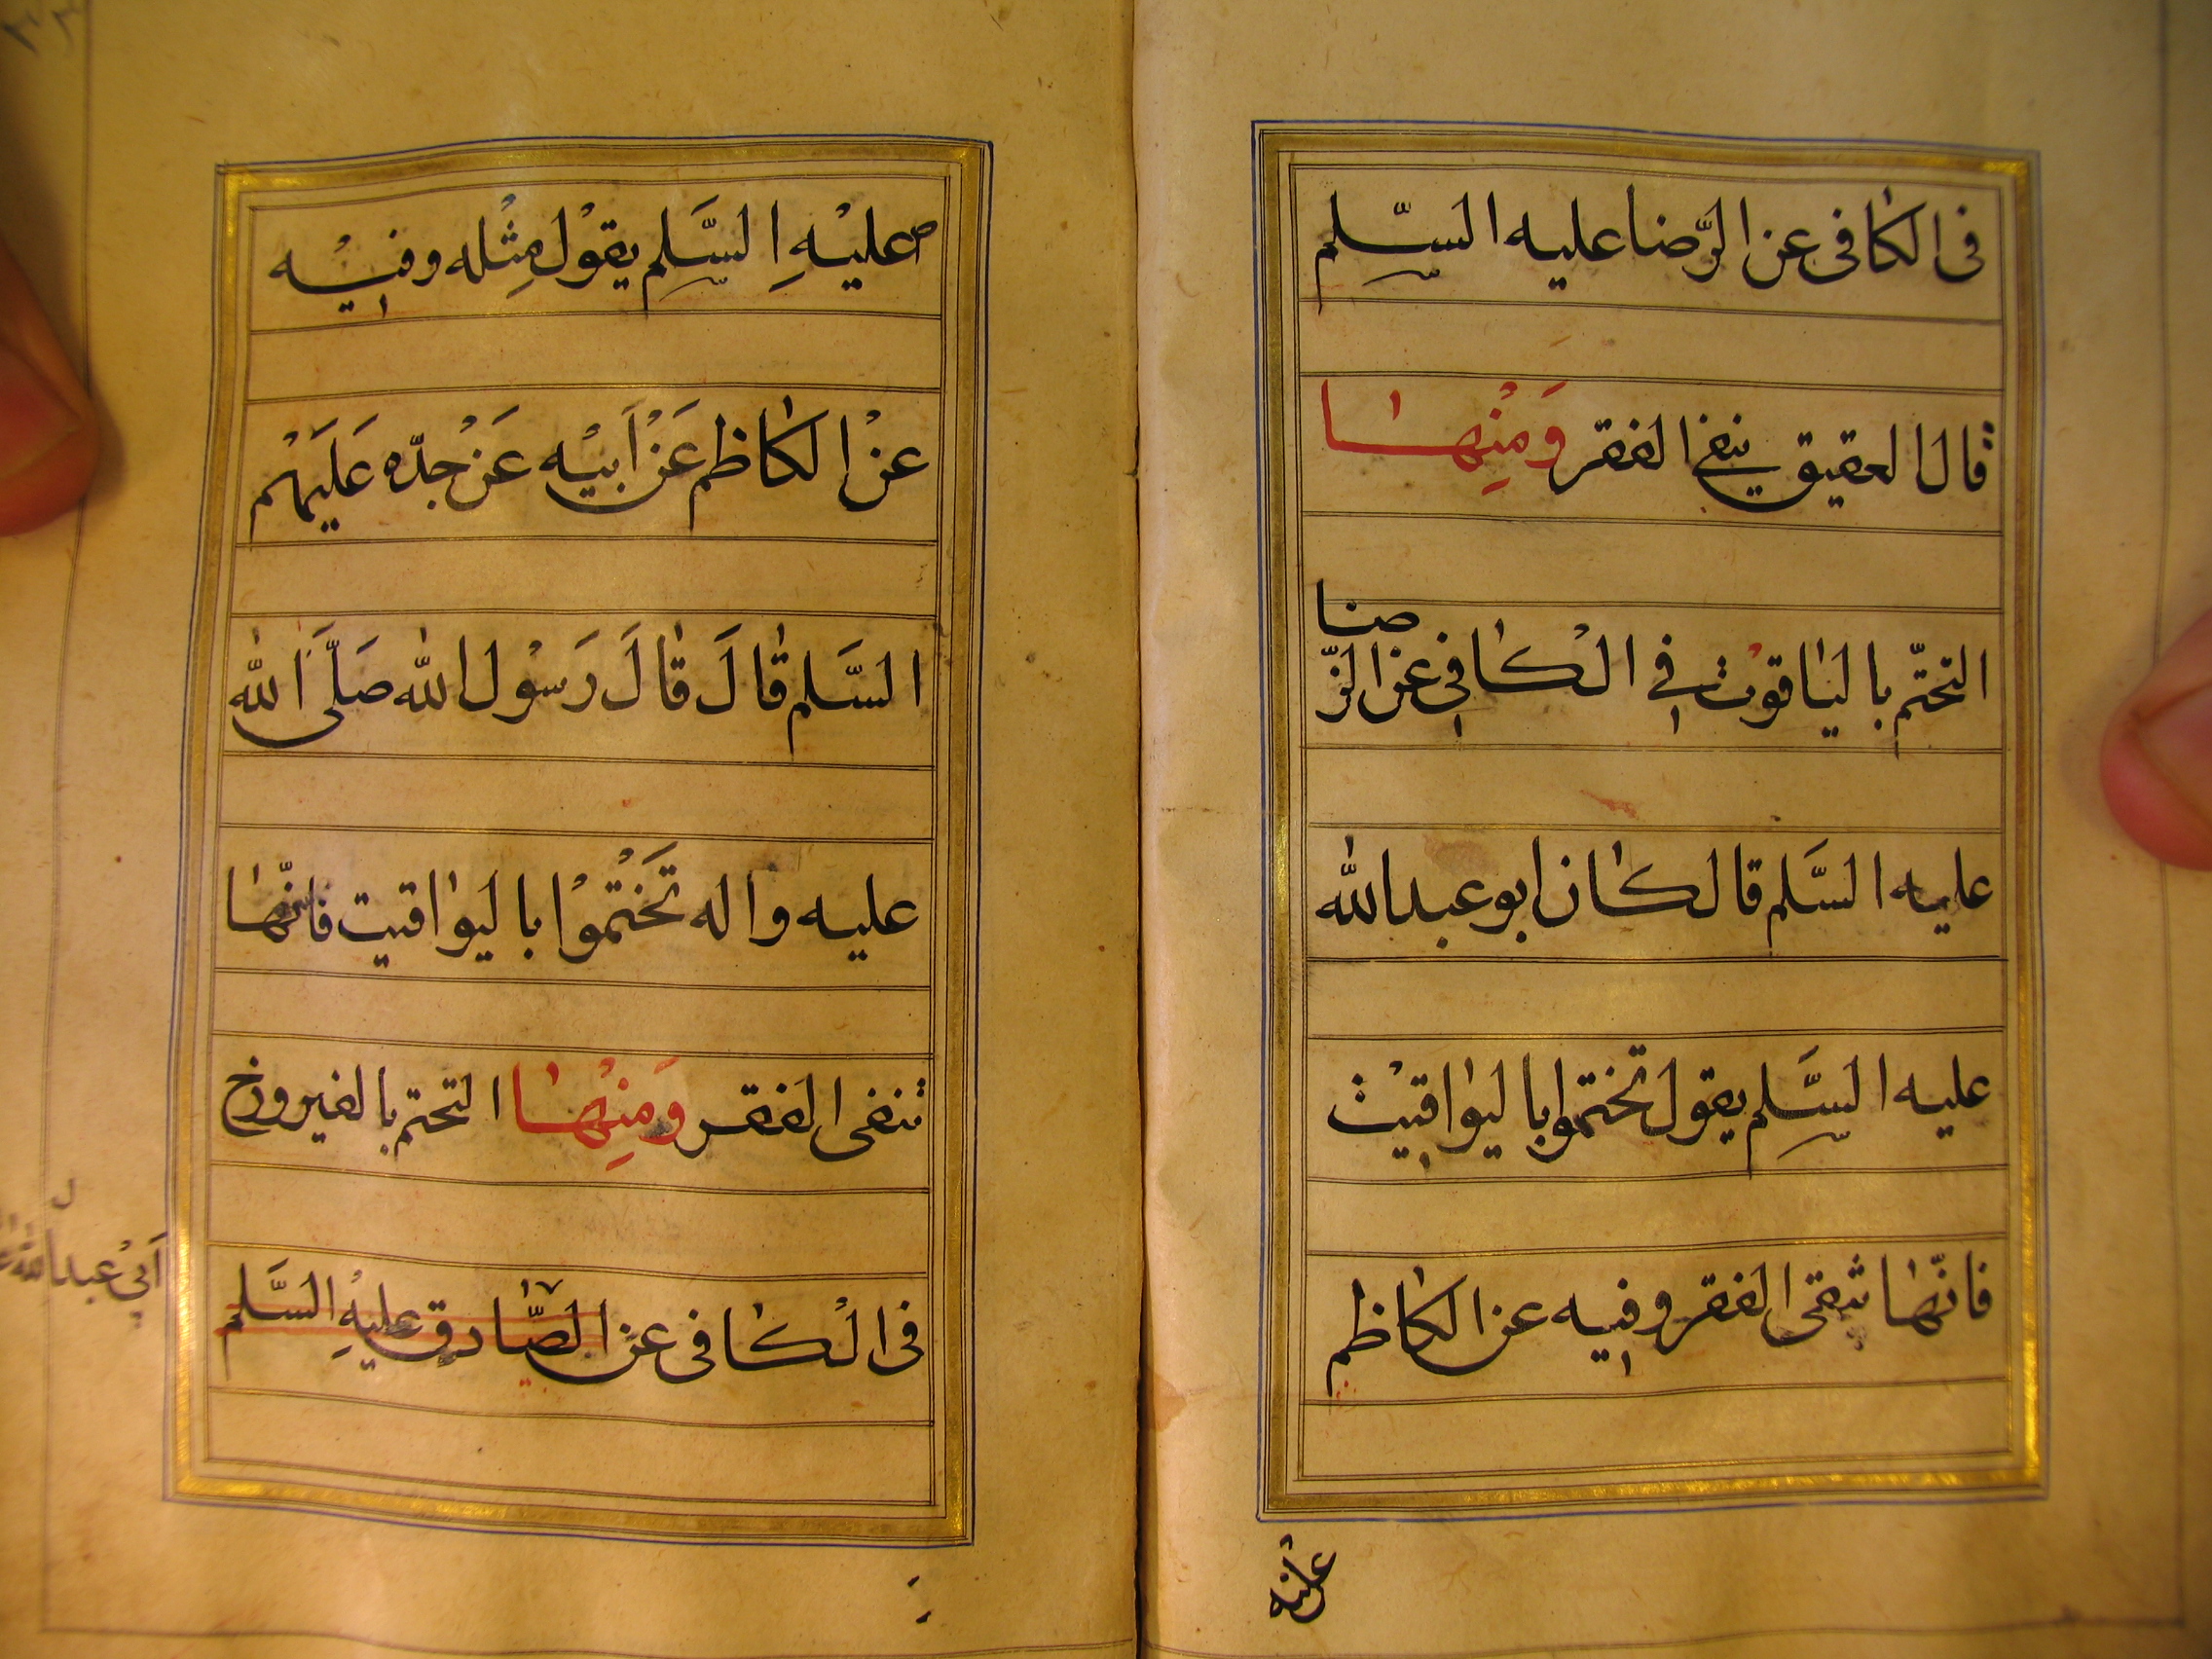 فى الكافى عن الرّضا عليه السّلم
قال العقيق ينفى الفقر وَمنِها
التختّم باليٰاقوت في الكٰافي عن الرّضا
عليه السَّلم قال كٰان ابو عبد الله
عليه السَّلم يقول تختموا باليوٰاقيت
فانّهٰا تنفى الفقر وفيه عن الكٰاظم
عليْه
عليْهِ السَّلم يقوْل مِثْله وفيْه
عنْ الكٰاظم عَنْ اَبيْه عَنْ جدّه عَلَيهْم
السَّلم قٰالَ قٰالَ رَسوْل الله صَلَّى اَلله
عليه واله تَخْتّموْا باليوٰاقيت فانّهٰا
تنفى الفقر وَمنِهْٰا التختم بالفيروزج
فى الْكٰافى عن الصّٰادق عليْهِ السَّلم
اَبيْ عبد الله